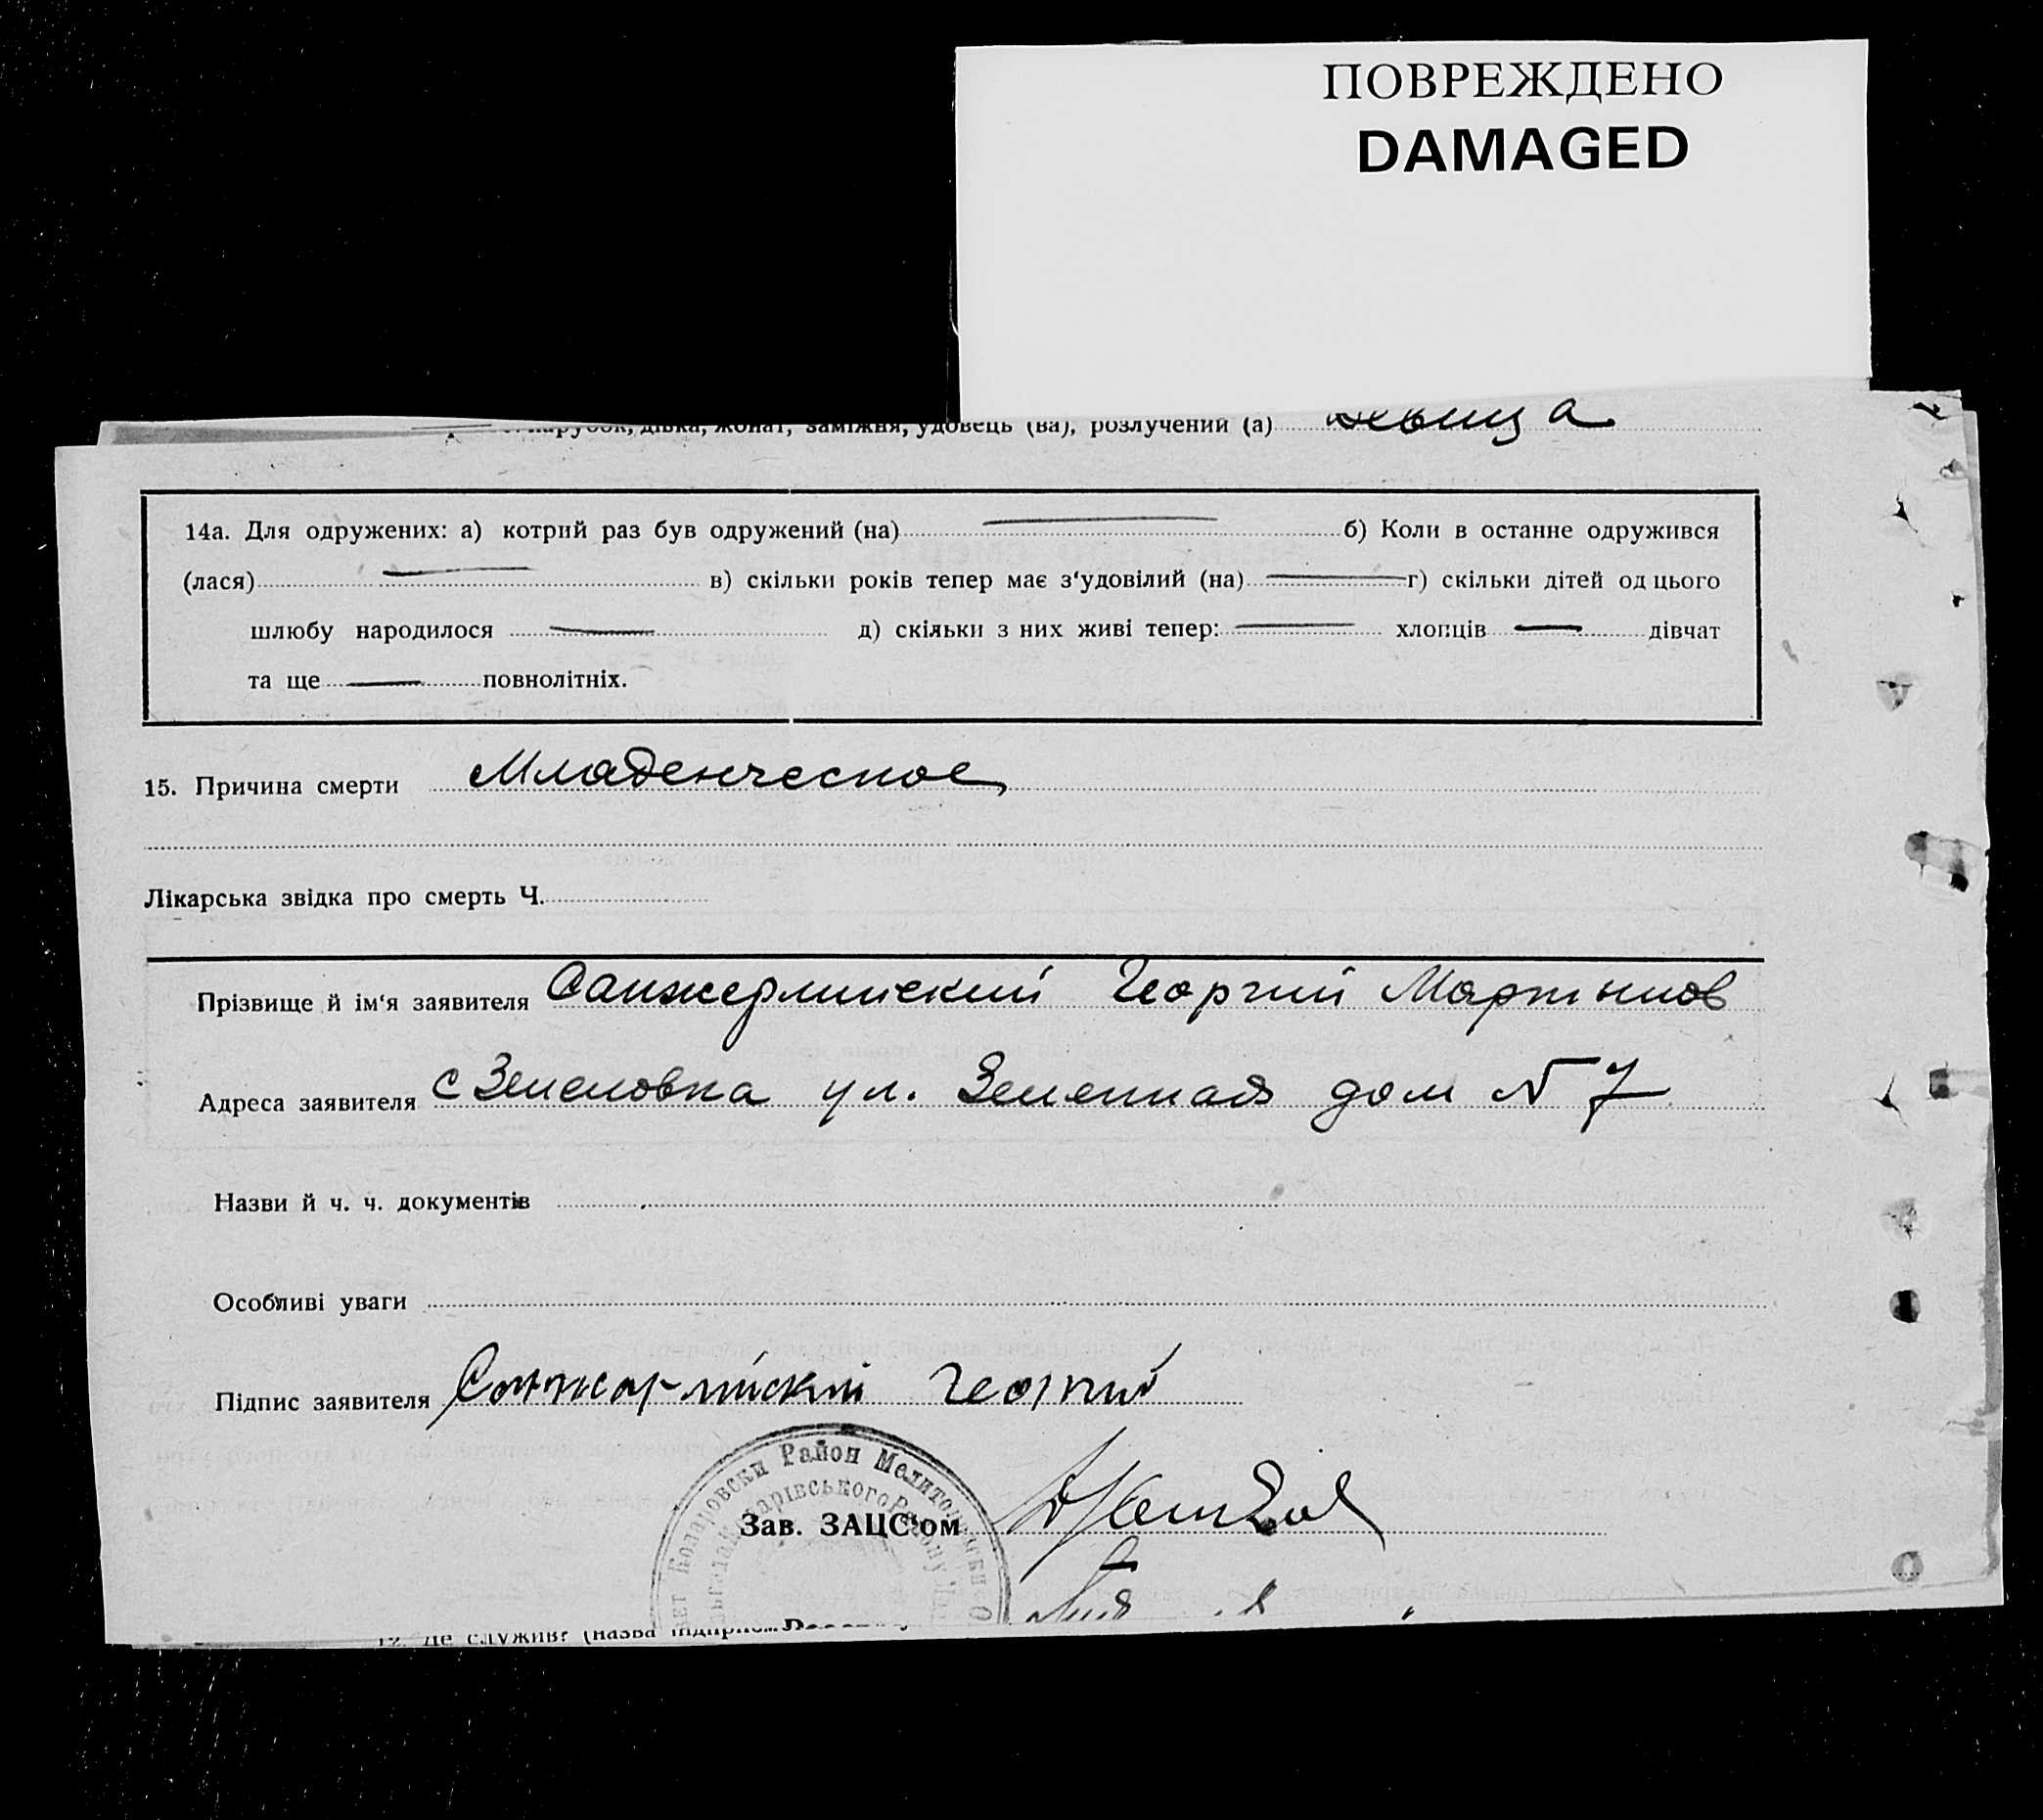 ПОВРЕЖДЕНО
DAMAGED
парубок, дівка, жонат, заміжня, удовець (ва), розлучений (а) девица
14а. Для одружених: а) котрий раз був одружений (на) б) Коли в останне одружився
(лася) в) скільки років тепер має з'удовілий (на) г) скільки дітей од цього
шлюбу народилося д) скільки з них живі тепер: хлопців дівчат
та ще повнолітніх.
15. Причина смерти Младенческое
Лікарська звідка про смерть Ч.
Прізвище й ім'я заявителя Санжерлинский Георгий Мартынов
Адреса заявителя с Зеленовка ул. Зеленная дом N 7
Назви й ч. ч. документів
Особливі уваги
Підпис заявителя Санжарлийский Георгий
Коларовски Район Мелитопольски О
Зав. ЗАЦС'ом
12. Де служив? (назва